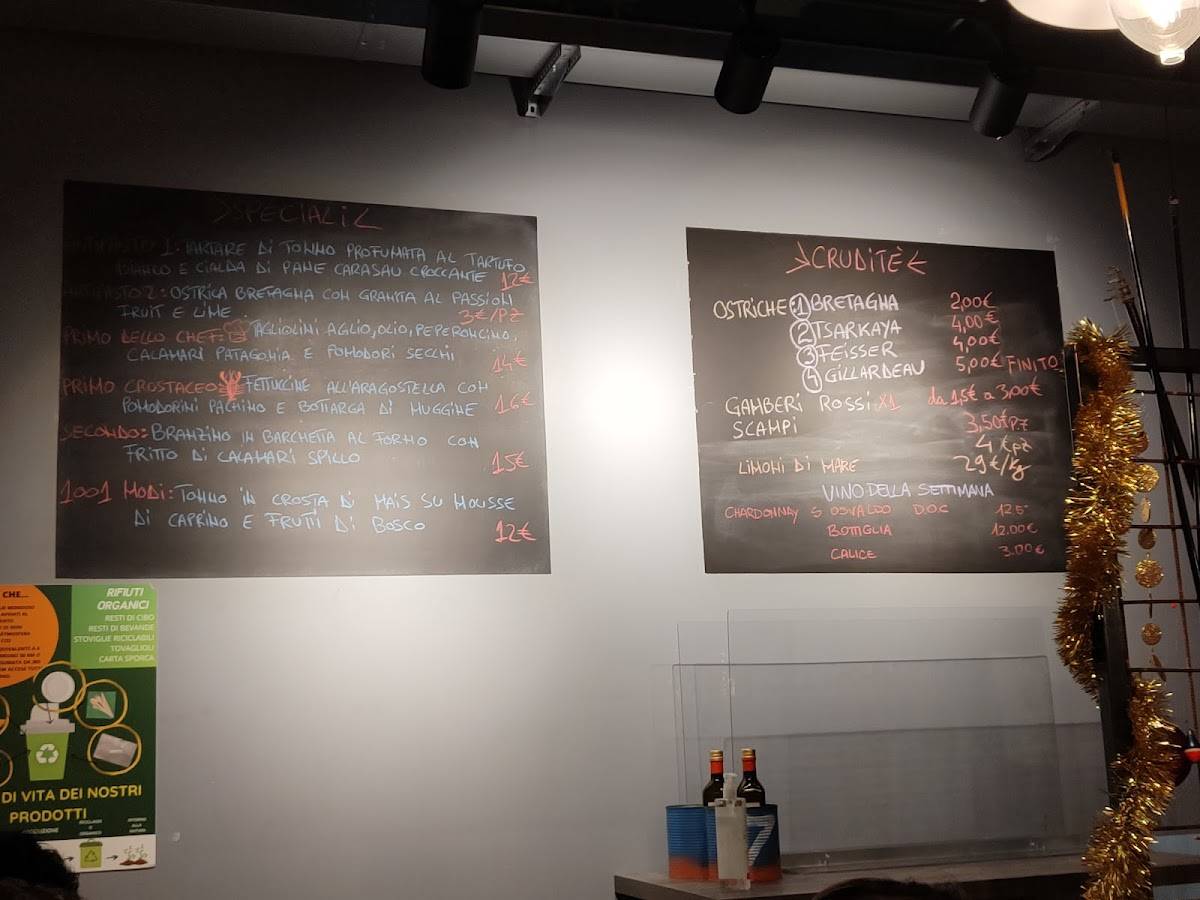 >SPECIALI<
ANTIPASTO 1: TARTARE DI TONNO PROFUMATA AL TARTUFO
BIANCO E CIALDA DI PANE CARASAU CROCCANTE 12€
ANTIPASTO 2: OSTRICA BRETAGNA CON GRANITA AL PASSION
FRUIT E LIME. 3€/PZ
PRIMO DELLO CHEF: TAGLIOLINI AGLIO, OLIO, PEPERONCINO,
CALAMARI PATAGONIA E POMODORI SECCHI 14€
PRIMO CROSTACEO: FETTUCCINE ALL'ARAGOSTELLA CON
POMODORINI PACHINO E BOTTARGA DI MUGGINE 16€
SECONDO: BRANZINO IN BARCHETTA AL FORNO CON
FRITTO DI CALAMARI SPILLO 15€
1001 MODI: TONNO IN CROSTA DI MAIS SU MOUSSE
DI CAPRINO E FRUTTI DI BOSCO 12€
>CRUDITÈ<
OSTRICHE: 1 BRETAGNA 2,00€
2 TSARKAYA 4,00€
3 FEISSER 4,00€
4 GILLARDEAU 5,00€ FINITO!
GAMBERI ROSSI X1 da 1,5€ a 3,00€
SCAMPI 3,50€pz
4€pz
LIMONI DI MARE 29€/kg
VINO DELLA SETTIMANA
CHARDONNAY S. OSVALDO D.O.C 12.5°
BOTTIGLIA 12.00€
CALICE 3.00€
CHE...
RIFIUTI
ORGANICI
RESTI DI CIBO
RESTI DI BEVANDE
STOVIGLIE RICICLABILI
TOVAGLIOLI
CARTA SPORCA
DI VITA DEI NOSTRI
PRODOTTI
7